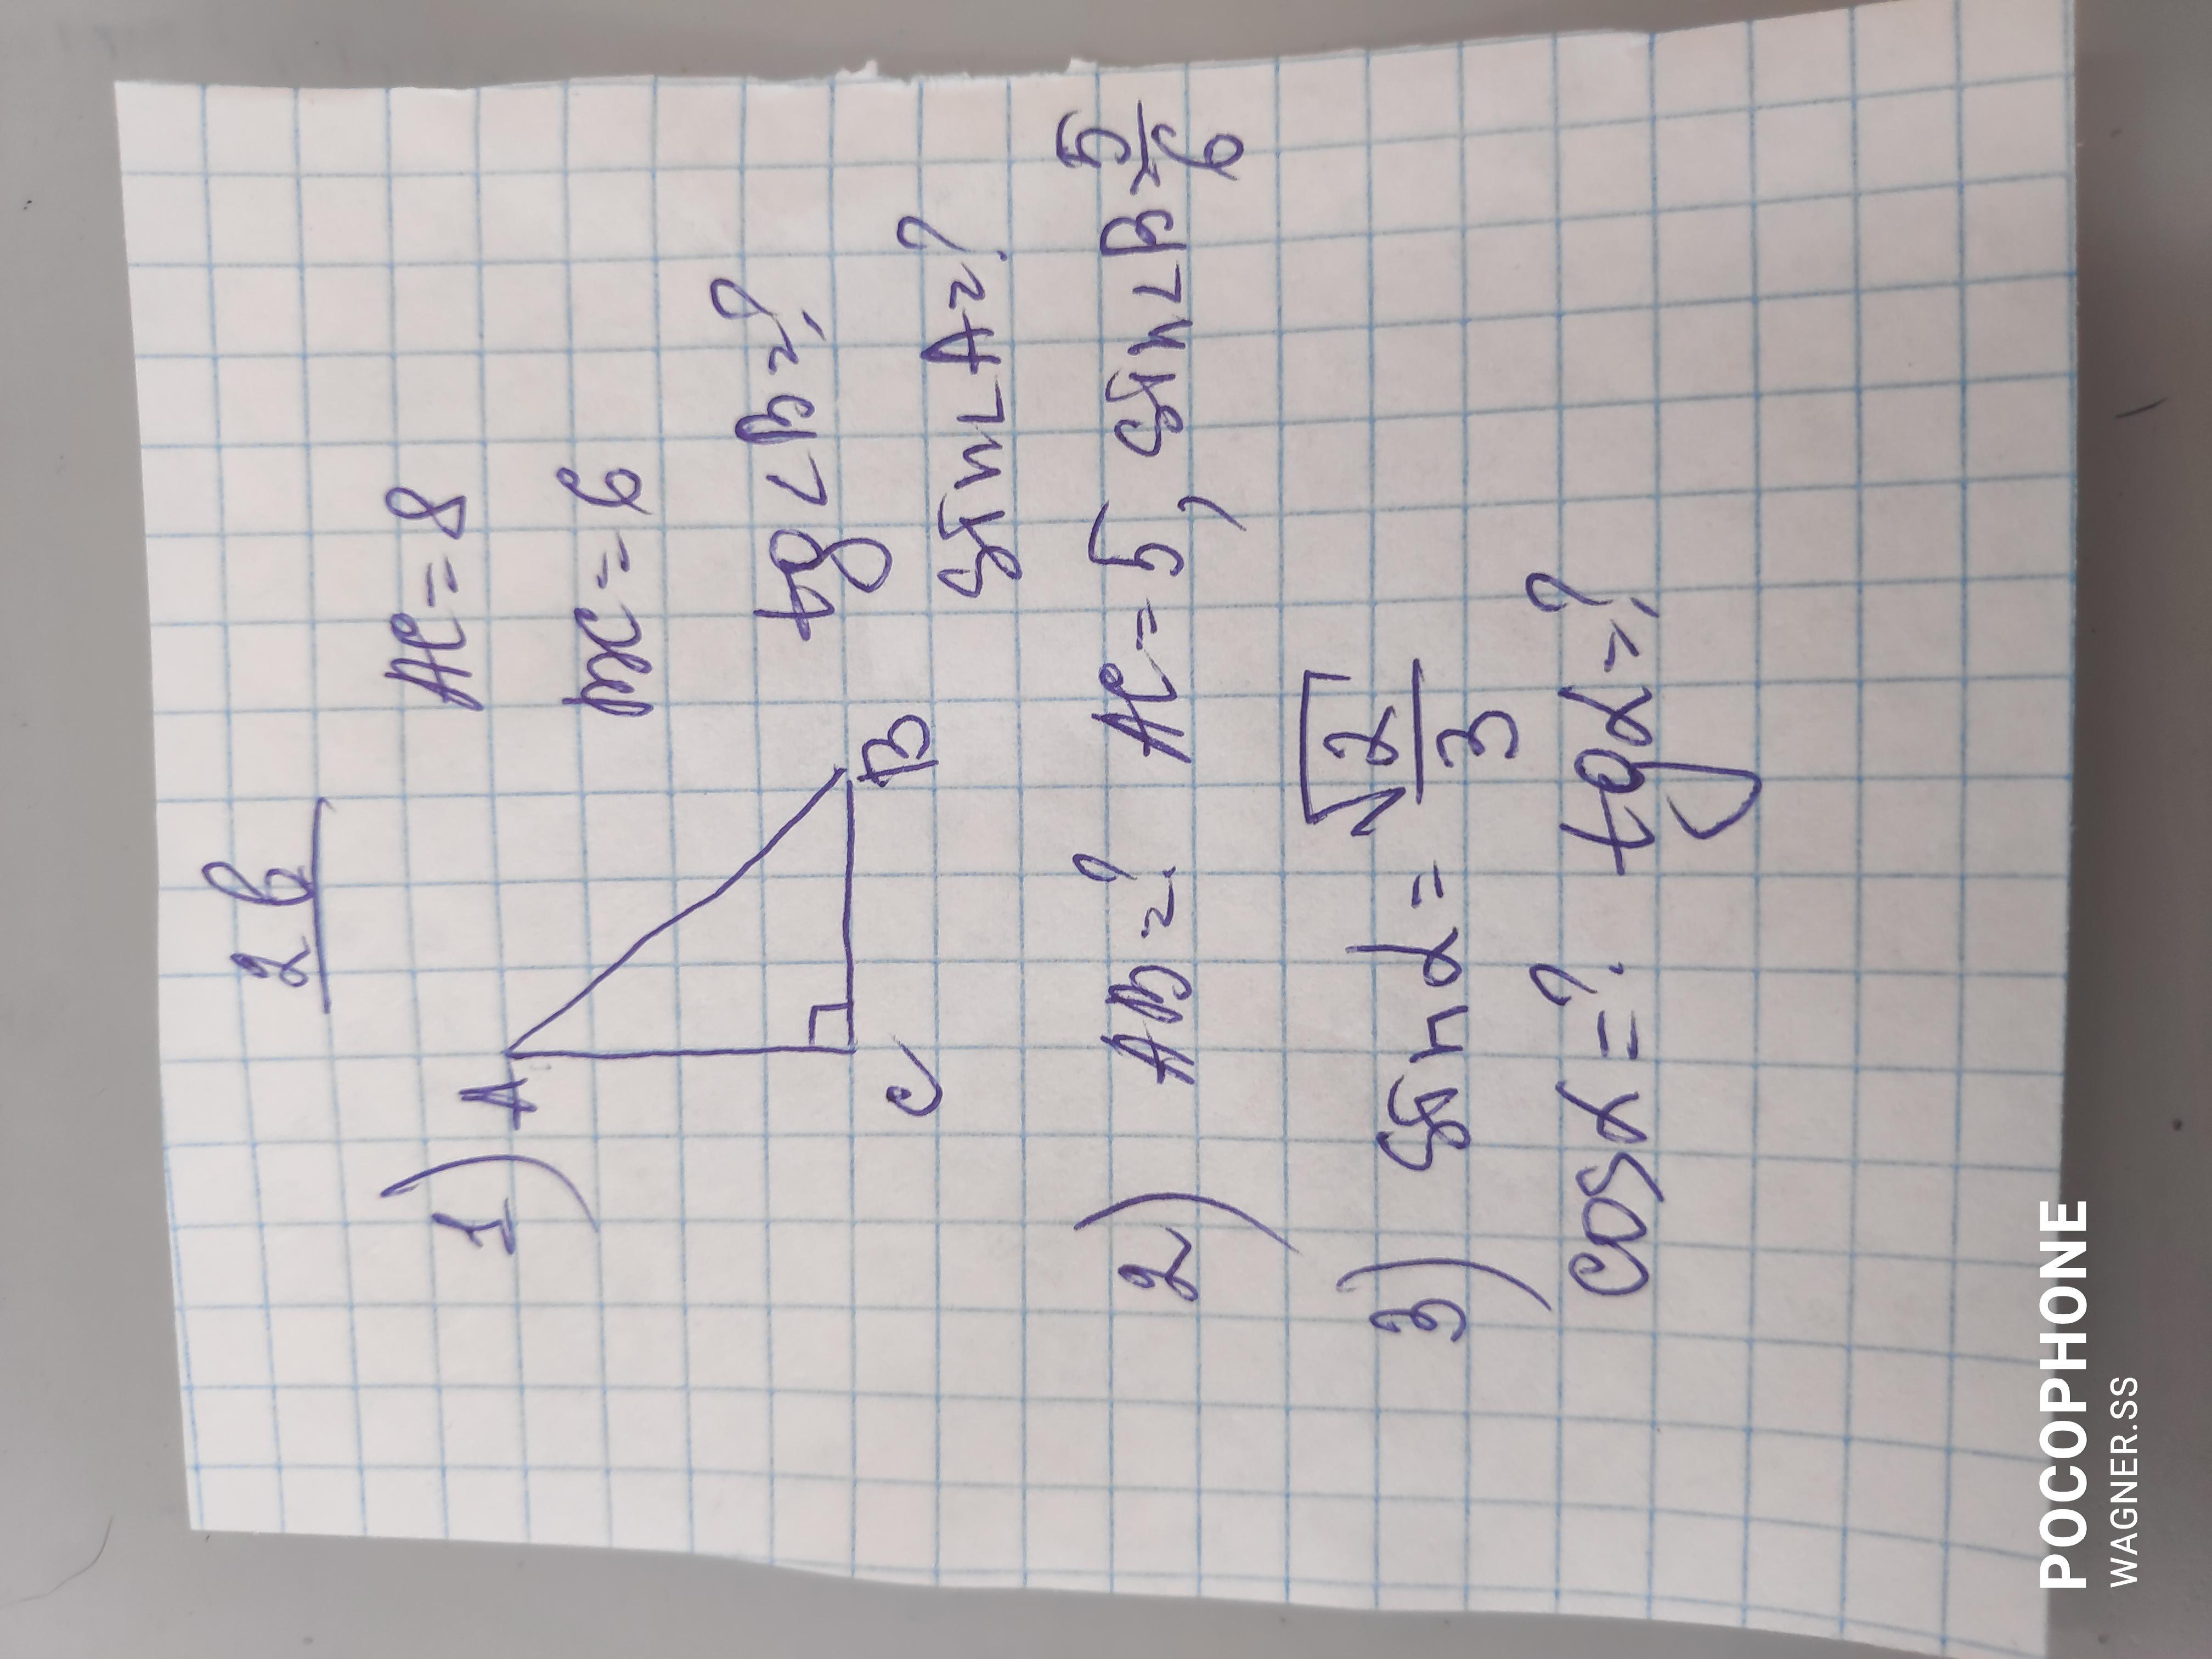 2 в
1) A
AC = 8
BC = 6
C
B
tg∠B = ?
sin∠A = ?
2) AB = ? AC = 5, sin∠B = 5/6
3) sin α = √2/3
cos α = ? tg α = ?
POCOPHONE
WAGNER.SS